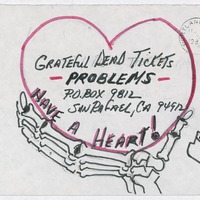 GRATEFUL DEAD TICKETS
- PROBLEMS -
P.O. BOX 9812
SAN RAFAEL, CA 94912
HAVE A HEART!